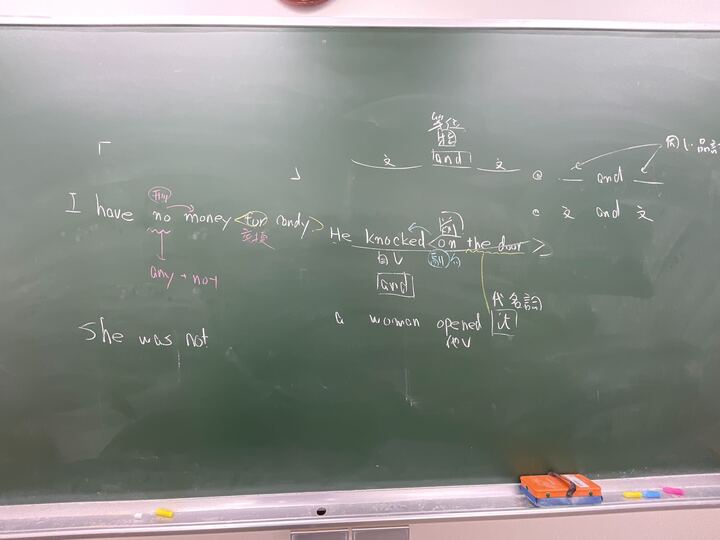 「 」
I have no money <for candy>
any + not
She was not
等位
文 and 文
同じ品詞
__ and __
文 and 文
He knocked <on the door>
自V 副句
and
代名詞
a woman opened it
他V